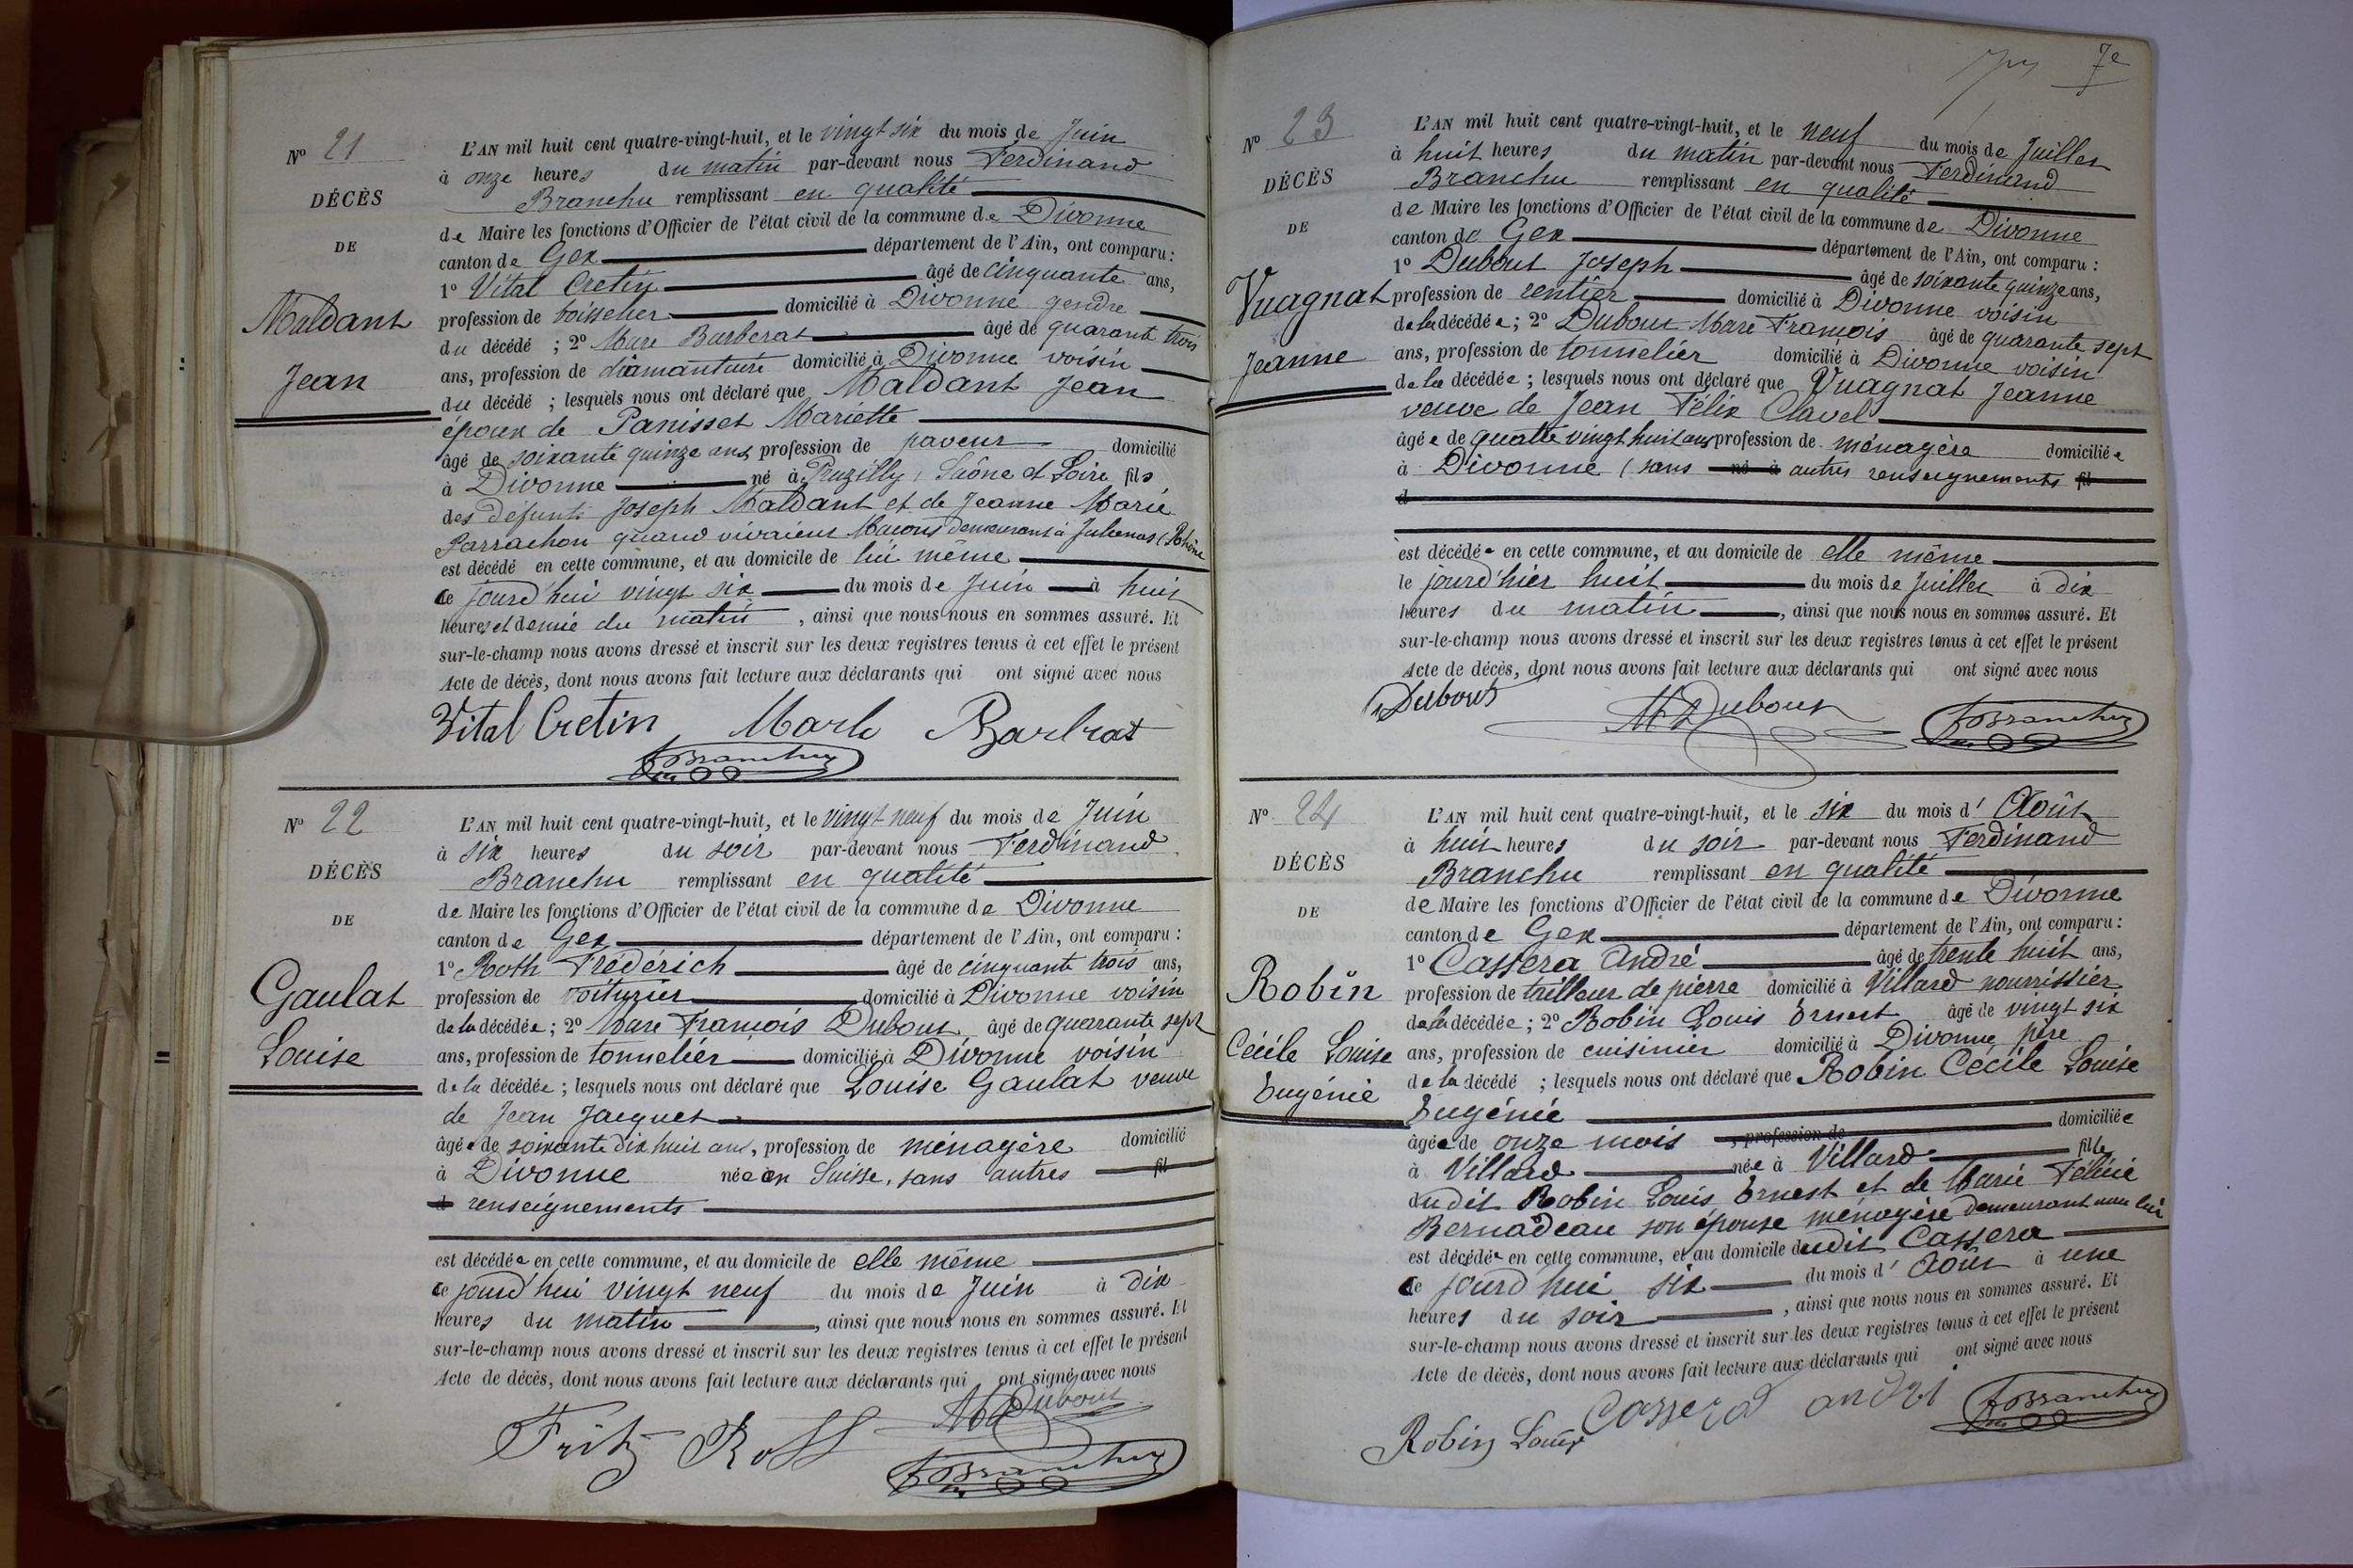 Nº 21
DÉCÈS
DE
Maldant
Jean
L'AN mil huit cent quatre-vingt-huit, et le vingt six du mois de Juin
à onze heures du matin par-devant nous Ferdinand
Branchu remplissant en qualité
de Maire les fonctions d'Officier de l'état civil de la commune de Divonne
canton de Gex département de l'Ain, ont comparu :
1º Vital Cretin âgé de cinquante ans,
profession de boisselier domicilié à Divonne gendre
du décédé ; 2º Marc Barberat âgé de quarante trois
ans, profession de diamantaire domicilié à Divonne voisin
du décédé ; lesquels nous ont déclaré que Maldant Jean
époux de Panisset Mariette
âgé de soixante quinze ans profession de paveur domicilié
à Divonne né à Pruzilly (Saône et Loire fils
des défunts Joseph Maldant et de Jeanne Marie
Parrachon quand vivaient Macons demeurant à Julienas (Rhône
est décédé en cette commune, et au domicile de lui même
ce jourd'hui vingt six du mois de Juin à huit
heures et demie du matin, ainsi que nous nous en sommes assuré. Et
sur-le-champ nous avons dressé et inscrit sur les deux registres tenus à cet effet le présent
Acte de décès, dont nous avons fait lecture aux déclarants qui ont signé avec nous
Vital Cretin Mark Barbrat
F Branchu
Nº 22
DÉCÈS
DE
Gaulat
Louise
L'AN mil huit cent quatre-vingt-huit, et le vingt neuf du mois de Juin
à six heures du soir par-devant nous Ferdinand
Branchu remplissant en qualité
de Maire les fonctions d'Officier de l'état civil de la commune de Divonne
canton de Gex département de l'Ain, ont comparu :
1º Roth Frédérich âgé de cinquante trois ans,
profession de voiturier domicilié à Divonne voisin
de la décédée ; 2º Marc François Dubout âgé de quarante sept
ans, profession de tonnelier domicilié à Divonne voisin
de la décédée ; lesquels nous ont déclaré que Louise Gaulat veuve
de Jean Jacquet
âgée de soixante dix huit ans, profession de ménagère domicilié
à Divonne née en Suisse, sans autres fil
d renseignements
est décédée en cette commune, et au domicile de elle même
ce jourd'hui vingt neuf du mois de Juin à dix
heures du matin, ainsi que nous nous en sommes assuré. Et
sur-le-champ nous avons dressé et inscrit sur les deux registres tenus à cet effet le présent
Acte de décès, dont nous avons fait lecture aux déclarants qui ont signé avec nous
M Dubout
Fritz Roth
F Branchu
7e
Nº 23
DÉCÈS
DE
Vuagnat
Jeanne
L'AN mil huit cent quatre-vingt-huit, et le neuf du mois de Juillet
à huit heures du matin par-devant nous Ferdinand
Branchu remplissant en qualité
de Maire les fonctions d'Officier de l'état civil de la commune de Divonne
canton de Gex département de l'Ain, ont comparu :
1º Dubout Joseph âgé de soixante quinze ans,
profession de rentier domicilié à Divonne voisin
de la décédée ; 2º Dubout Marc François âgé de quarante sept
ans, profession de tonnelier domicilié à Divonne voisin
de la décédée ; lesquels nous ont déclaré que Vuagnat Jeanne
veuve de Jean Félix Clavel
âgée de quatre vingt huit ans profession de ménagère domiciliée
à Divonne (sans né à autres renseignements fil
d
est décédée en cette commune, et au domicile de elle même
le jourd'hier huit du mois de Juillet à dix
heures du matin, ainsi que nous nous en sommes assuré. Et
sur-le-champ nous avons dressé et inscrit sur les deux registres tenus à cet effet le présent
Acte de décès, dont nous avons fait lecture aux déclarants qui ont signé avec nous
Dubout M Dubout F Branchu
Nº 24
DÉCÈS
DE
Robin
Cécile Louise
Eugénie
L'AN mil huit cent quatre-vingt-huit, et le six du mois d'Août
à huit heures du soir par-devant nous Ferdinand
Branchu remplissant en qualité
de Maire les fonctions d'Officier de l'état civil de la commune de Divonne
canton de Gex département de l'Ain, ont comparu :
1º Cassera André âgé de trente huit ans,
profession de tailleur de pierre domicilié à Villard nourrissier
de la décédée ; 2º Robin Louis Ernest âgé de vingt six
ans, profession de cuisinier domicilié à Divonne père
de la décédé ; lesquels nous ont déclaré que Robin Cécile Louise
Eugénie
âgée de onze mois , profession de domiciliée
à Villard née à Villard fille
dudit Robin Louis Ernest et de Marie Félicie
Bernadeau son épouse ménagère demeurant avec lui
est décédée en cette commune, et au domicile dudit Cassera
ce jourd'hui six du mois d'Août à une
heures du soir, ainsi que nous nous en sommes assuré. Et
sur-le-champ nous avons dressé et inscrit sur les deux registres tenus à cet effet le présent
Acte de décès, dont nous avons fait lecture aux déclarants qui ont signé avec nous
Robin Louis Cassera andré F Branchu